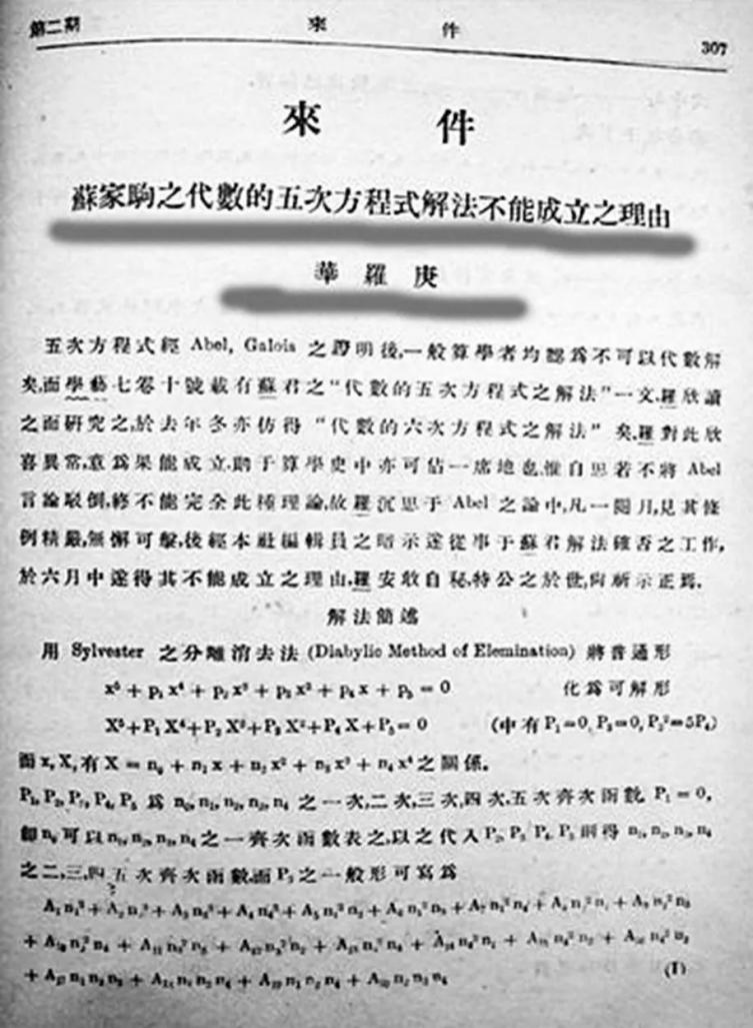 第二期 來 件 307
來 件
蘇家駒之代數的五次方程式解法不能成立之理由
華羅庚
五次方程式經 Abel, Galois 之證明後,一般算學者均認爲不可以代數解
矣,而學藝七卷十號載有蘇君之“代數的五次方程式之解法”一文,羅欣讀
之而研究之,於去年冬亦仿得“代數的六次方程式之解法”矣,羅對此欣
喜異常,意爲果能成立,則于算學史中亦可佔一席地也,惟自思若不將 Abel
言論駁倒,終不能完全此種理論,故羅沉思于 Abel 之論中,凡一閱月,見其條
例精嚴,無懈可擊,後經本社編輯員之暗示遂從事于蘇君解法確否之工作,
於六月中遂得其不能成立之理由,羅安敢自秘,特公之於世,尚祈示正焉.
解法簡述
用 Sylvester 之分離消去法 (Diabylic Method of Elemination) 將普通形
x⁵ + p₁ x⁴ + p₂ x³ + p₃ x² + p₄ x + p₅ = 0 化爲可解形
X⁵+P₁ X⁴+P₂ X³+P₃ X²+P₄ X+P₅= 0 (中有 P₁=0, P₃=0, P₂²=5P₄)
而 x, X, 有 X = n₀ + n₁ x + n₂ x² + n₃ x³ + n₄ x⁴ 之關係.
P₁, P₂, P₃, P₄, P₅ 爲 n₀, n₁, n₂, n₃, n₄ 之一次,二次,三次,四次,五次齊次函數. P₁ = 0,
卽 n₀ 可以 n₁, n₂, n₃, n₄ 之一齊次函數表之,以之代入 P₂, P₃, P₄, P₅ 則得 n₁, n₂, n₃, n₄
之二,三,四,五次齊次函數,而 P₃ 之一般形可寫爲
A₁ n₁³ + A₂ n₂³ + A₃ n₃³ + A₄ n₄³ + A₅ n₁² n₂ + A₆ n₁² n₃ + A₇ n₁² n₄ + A₈ n₂² n₁ + A₉ n₂² n₃
+ A₁₀ n₂² n₄ + A₁₁ n₃² n₁ + A₁₂ n₃² n₂ + A₁₃ n₃² n₄ + A₁₄ n₄² n₁ + A₁₅ n₄² n₂ + A₁₆ n₄² n₃
+ A₁₇ n₁ n₂ n₃ + A₁₈ n₁ n₂ n₄ + A₁₉ n₁ n₃ n₄ + A₂₀ n₂ n₃ n₄ (I)